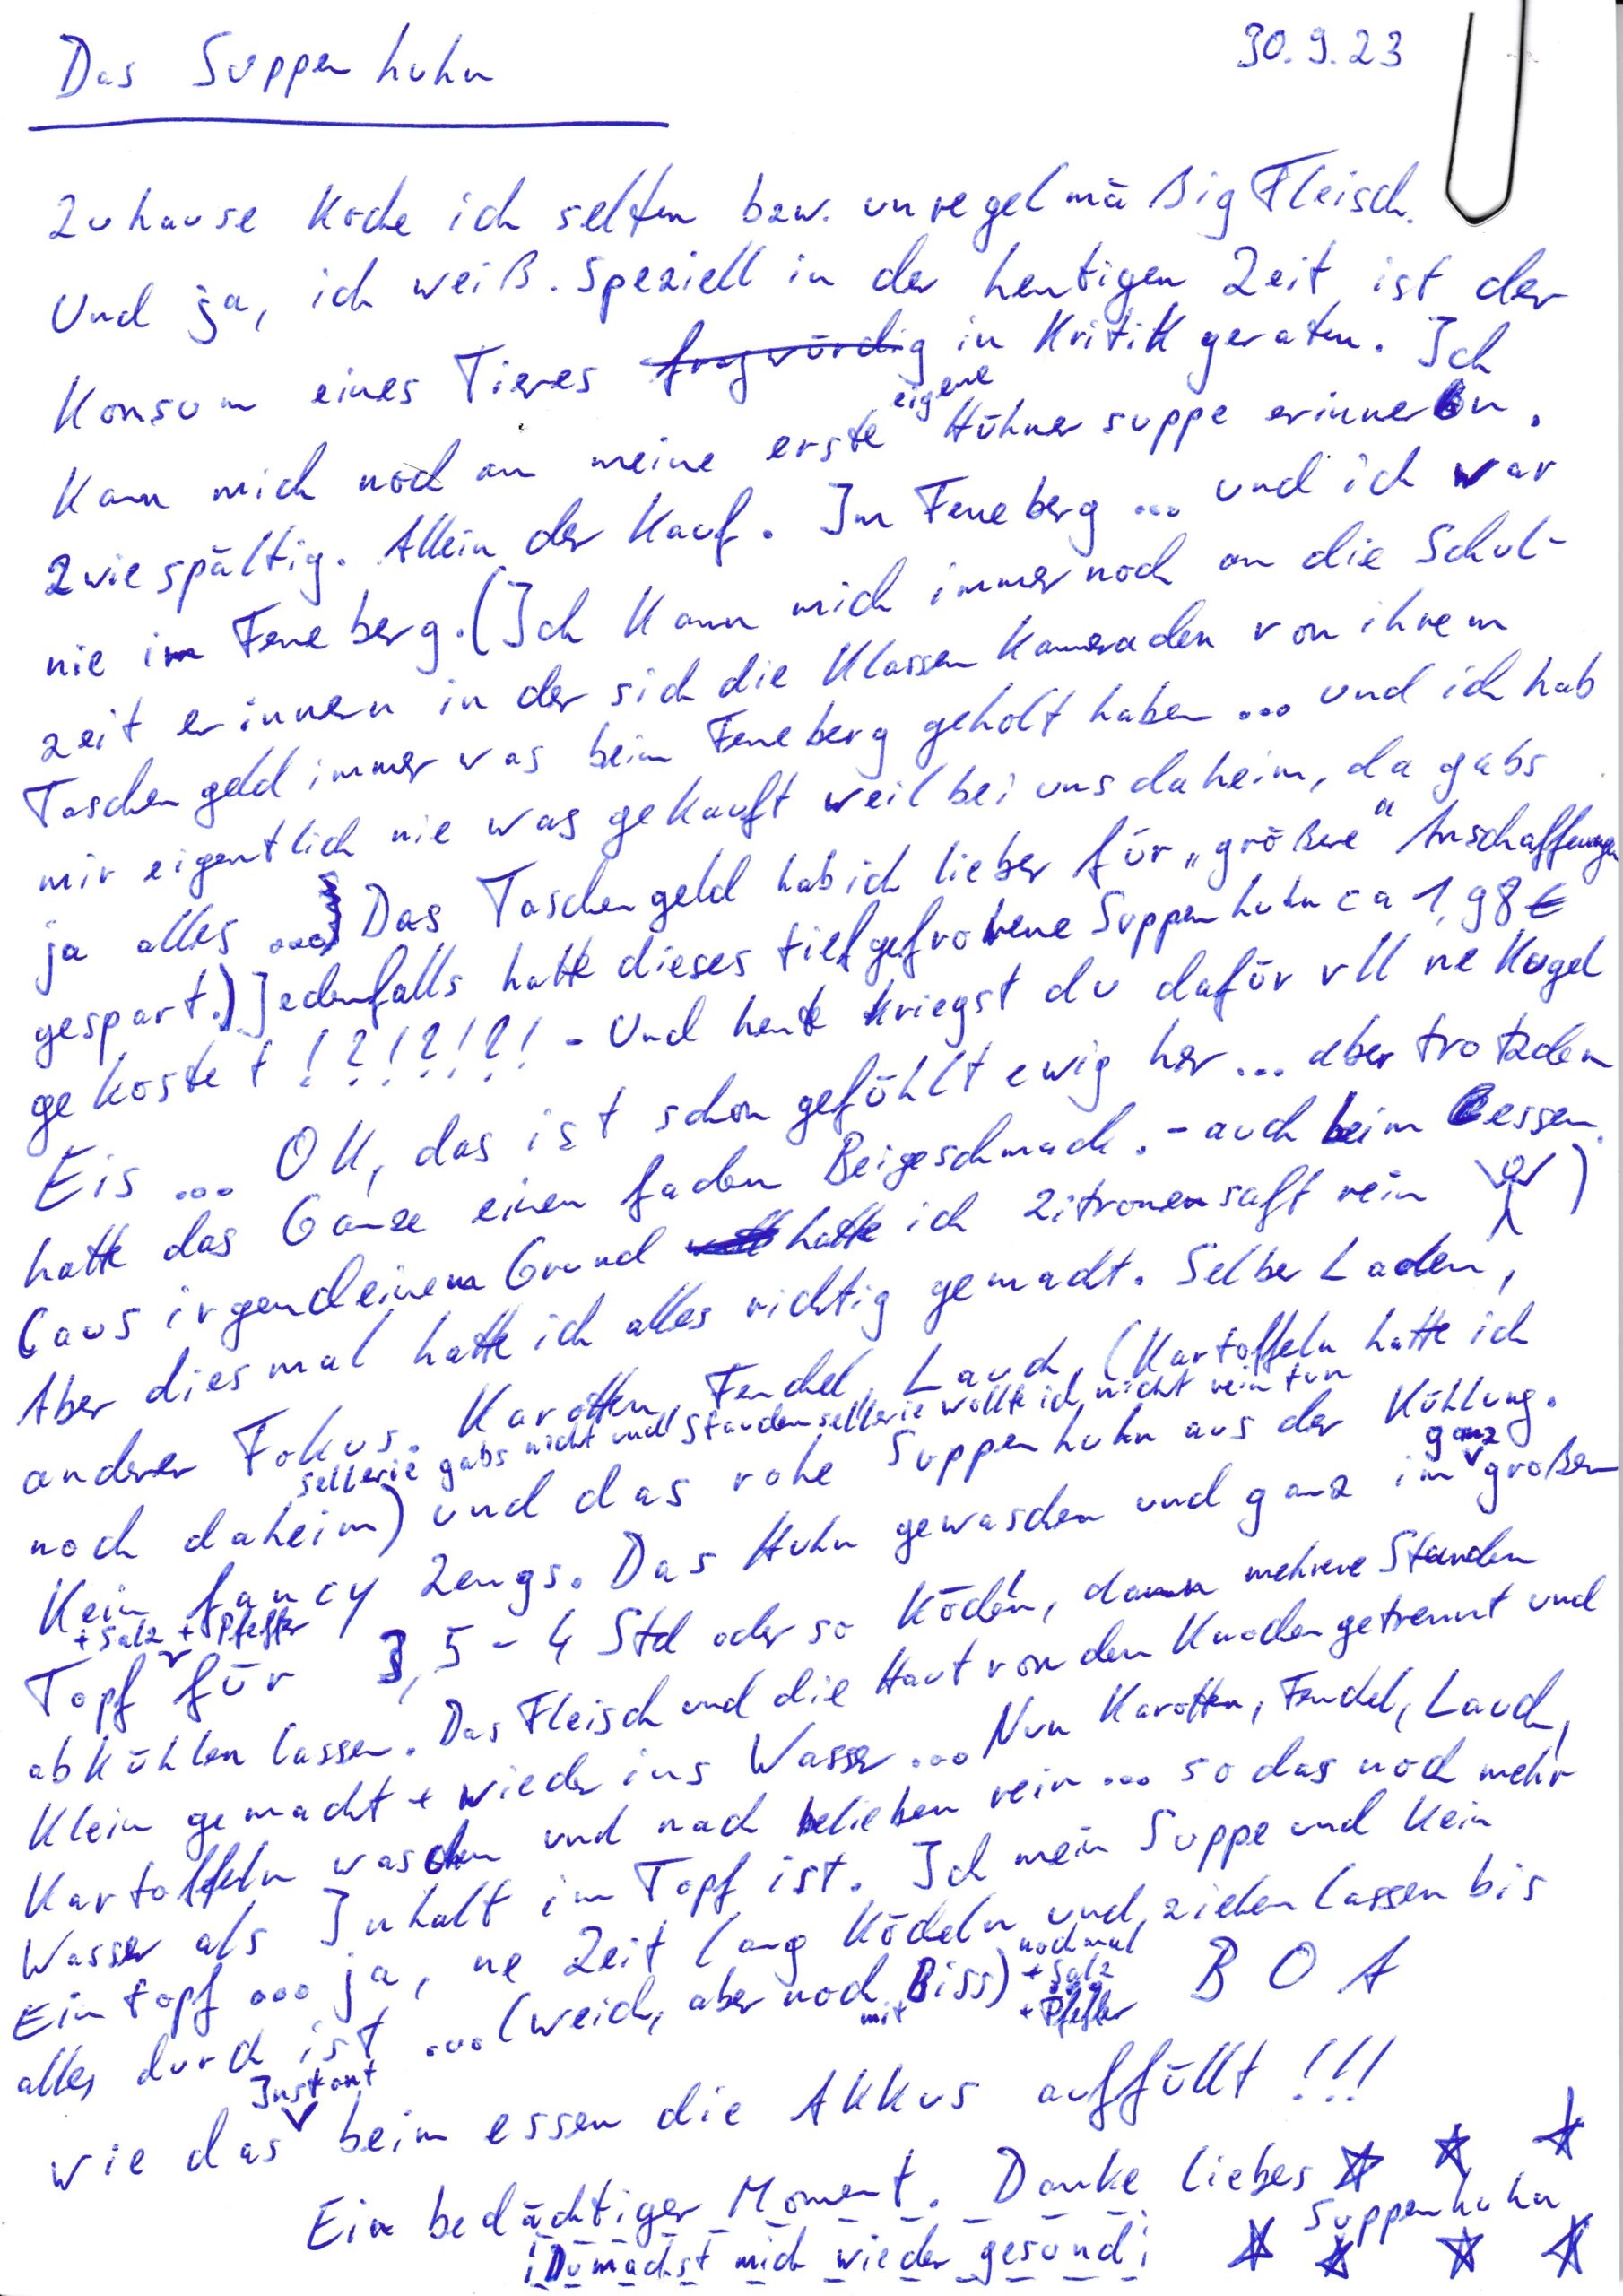 Das Suppenhuhn
30.9.23
Zuhause koche ich selten bzw. unregelmäßig Fleisch.
Und ja, ich weiß. Speziell in der heutigen Zeit ist der
Konsum eines Tieres fragwürdig in Kritik geraten. Ich
kann mich noch an meine erste eigene Hühnersuppe erinnern.
Zwiespältig. Allein der Kauf. Im Feneberg ... und ich war
nie im Feneberg. (Ich kann mich immer noch an die Schul-
zeit erinnern in der sich die Klassenkameraden von ihrem
Taschengeld immer was beim Feneberg geholt haben ... und ich hab
mir eigentlich nie was gekauft weil bei uns daheim, da gabs
ja alles ... Das Taschengeld hab ich lieber für „größere“ Anschaffungen
gespart.) Jedenfalls hatte dieses tiefgefrorene Suppenhuhn ca 1,98 €
gekostet !?!?!?! - Und heute kriegst du dafür vll ne Kugel
Eis ... OK, das ist schon gefühlt ewig her ... aber trotzdem
hatte das Ganze einen faden Beigeschmack. - auch beim essen.
(aus irgendeinem Grund hatte ich Zitronensaft rein )
Aber diesmal hatte ich alles richtig gemacht. Selber Laden,
anderer Fokus. Karotten, Fenchel, Lauch, (Kartoffeln hatte ich
sellerie gabs nicht und Staudensellerie wollte ich nicht rein tun
noch daheim) und das rohe Suppenhuhn aus der Kühlung.
Kein fancy Zeugs. Das Huhn gewaschen und ganz im ganz großen
Topf + Salz + Pfeffer für 3,5 - 4 Std oder so köcheln, dann mehrere Stunden
abkühlen lassen. Das Fleisch und die Haut von den Knochen getrennt und
klein gemacht + wieder ins Wasser ... Nun Karotten, Fenchel, Lauch,
Kartoffeln waschen und nach belieben rein ... so das noch mehr
Wasser als Inhalt im Topf ist. Ich mein Suppe und kein
Eintopf ... ja, ne Zeit lang köcheln und ziehen lassen bis
alles durch ist ... (weich, aber noch mit Biss) nochmal + Salz + Pfeffer B O A
wie das Instant beim essen die Akkus auffüllt !!!
Ein bedächtiger Moment. Danke liebes
Suppenhuhn
¡Du machst mich wieder gesund¡